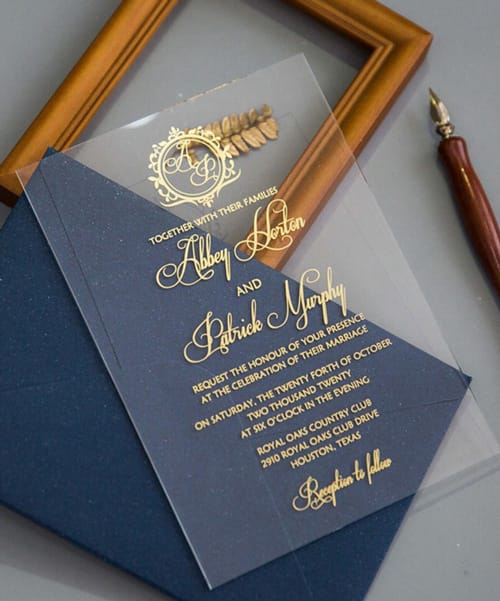 A P
TOGETHER WITH THEIR FAMILIES
Abbey Horton
AND
Patrick Murphy
REQUEST THE HONOUR OF YOUR PRESENCE
AT THE CELEBRATION OF THEIR MARRIAGE
ON SATURDAY, THE TWENTY FORTH OF OCTOBER
TWO THOUSAND TWENTY
AT SIX O'CLOCK IN THE EVENING
ROYAL OAKS COUNTRY CLUB
2910 ROYAL OAKS CLUB DRIVE
HOUSTON, TEXAS
Reception to follow